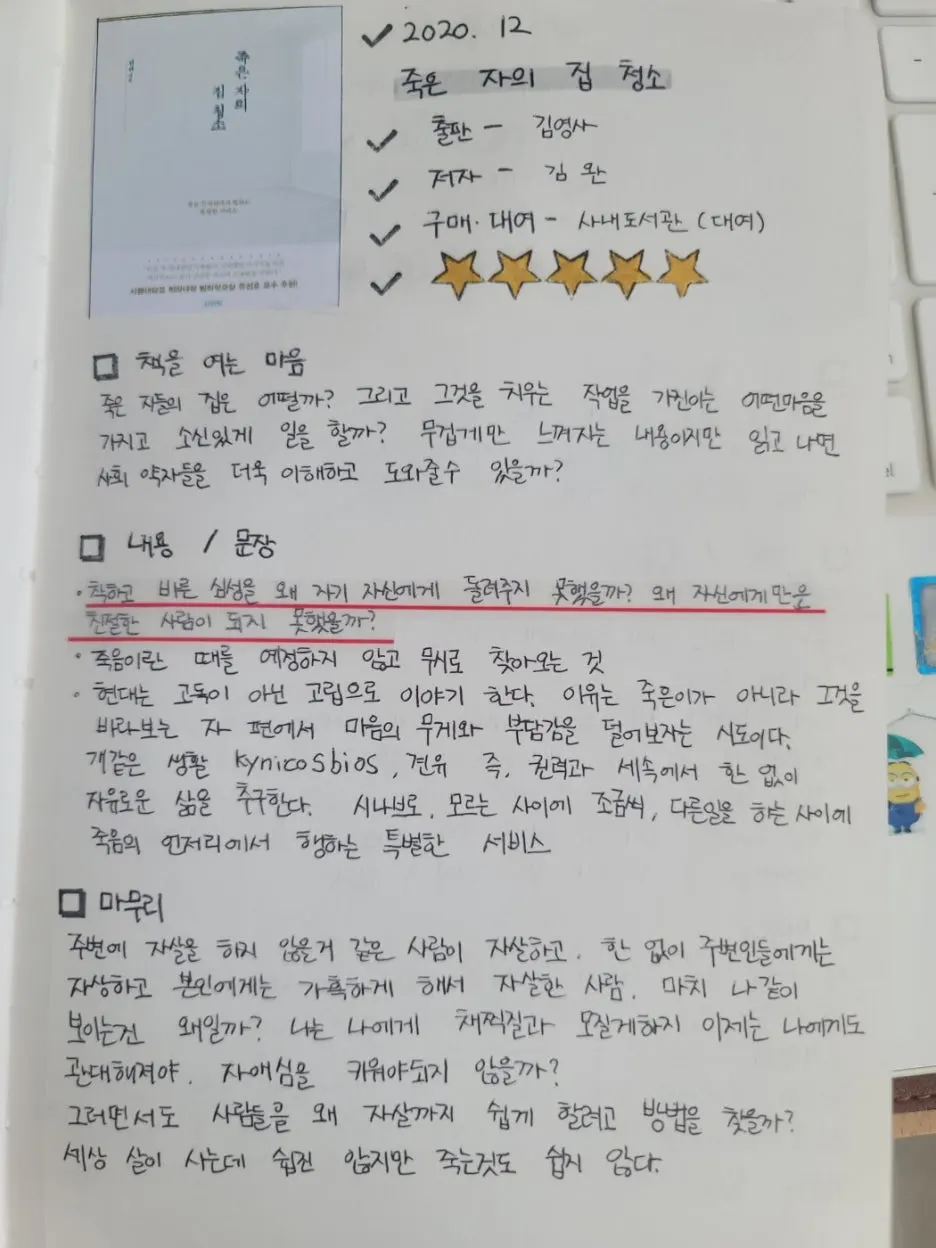 죽은 자의
집 청소
✓ 2020. 12
죽은 자의 집 청소
✓ 출판 - 김영사
✓ 저자 - 김 완
✓ 구매·대여 - 사내도서관 (대여)
✓ ★★★★★
□ 책을 여는 마음
죽은 자들의 집은 어떨까? 그리고 그것을 치우는 작업을 가진이는 어떤마음을
가지고 소신있게 일을 할까? 무겁게만 느껴지는 내용이지만 읽고 나면
사회 약자들을 더욱 이해하고 도와줄수 있을까?
□ 내용 / 문장
· 착하고 바른 심성을 왜 자기 자신에게 돌려주지 못했을까? 왜 자신에게만은
친절한 사람이 되지 못했을까?
· 죽음이란 때를 예정하지 않고 무시로 찾아오는 것
· 현대는 고독이 아닌 고립으로 이야기 한다. 이유는 죽은이가 아니라 그것을
바라보는 자 편에서 마음의 무게와 부담감을 덜어보자는 시도이다.
개같은 생활 kynicosbios, 견유 즉, 권력과 세속에서 한 없이
자유로운 삶을 추구한다. 시나브로, 모르는 사이에 조금씩, 다른일을 하는 사이에
죽음의 언저리에서 행하는 특별한 서비스
□ 마무리
주변에 자살을 하지 않을거 같은 사람이 자살하고, 한 없이 주변인들에게는
자상하고 본인에게는 가혹하게 해서 자살한 사람. 마치 나같이
보이는건 왜일까? 나는 나에게 채찍질과 모질게하지 이제는 나에게도
관대해져야, 자애심을 키워야되지 않을까?
그러면서도 사람들을 왜 자살까지 쉽게 할려고 방법을 찾을까?
세상 살이 사는데 쉽진 않지만 죽는것도 쉽지 않다.